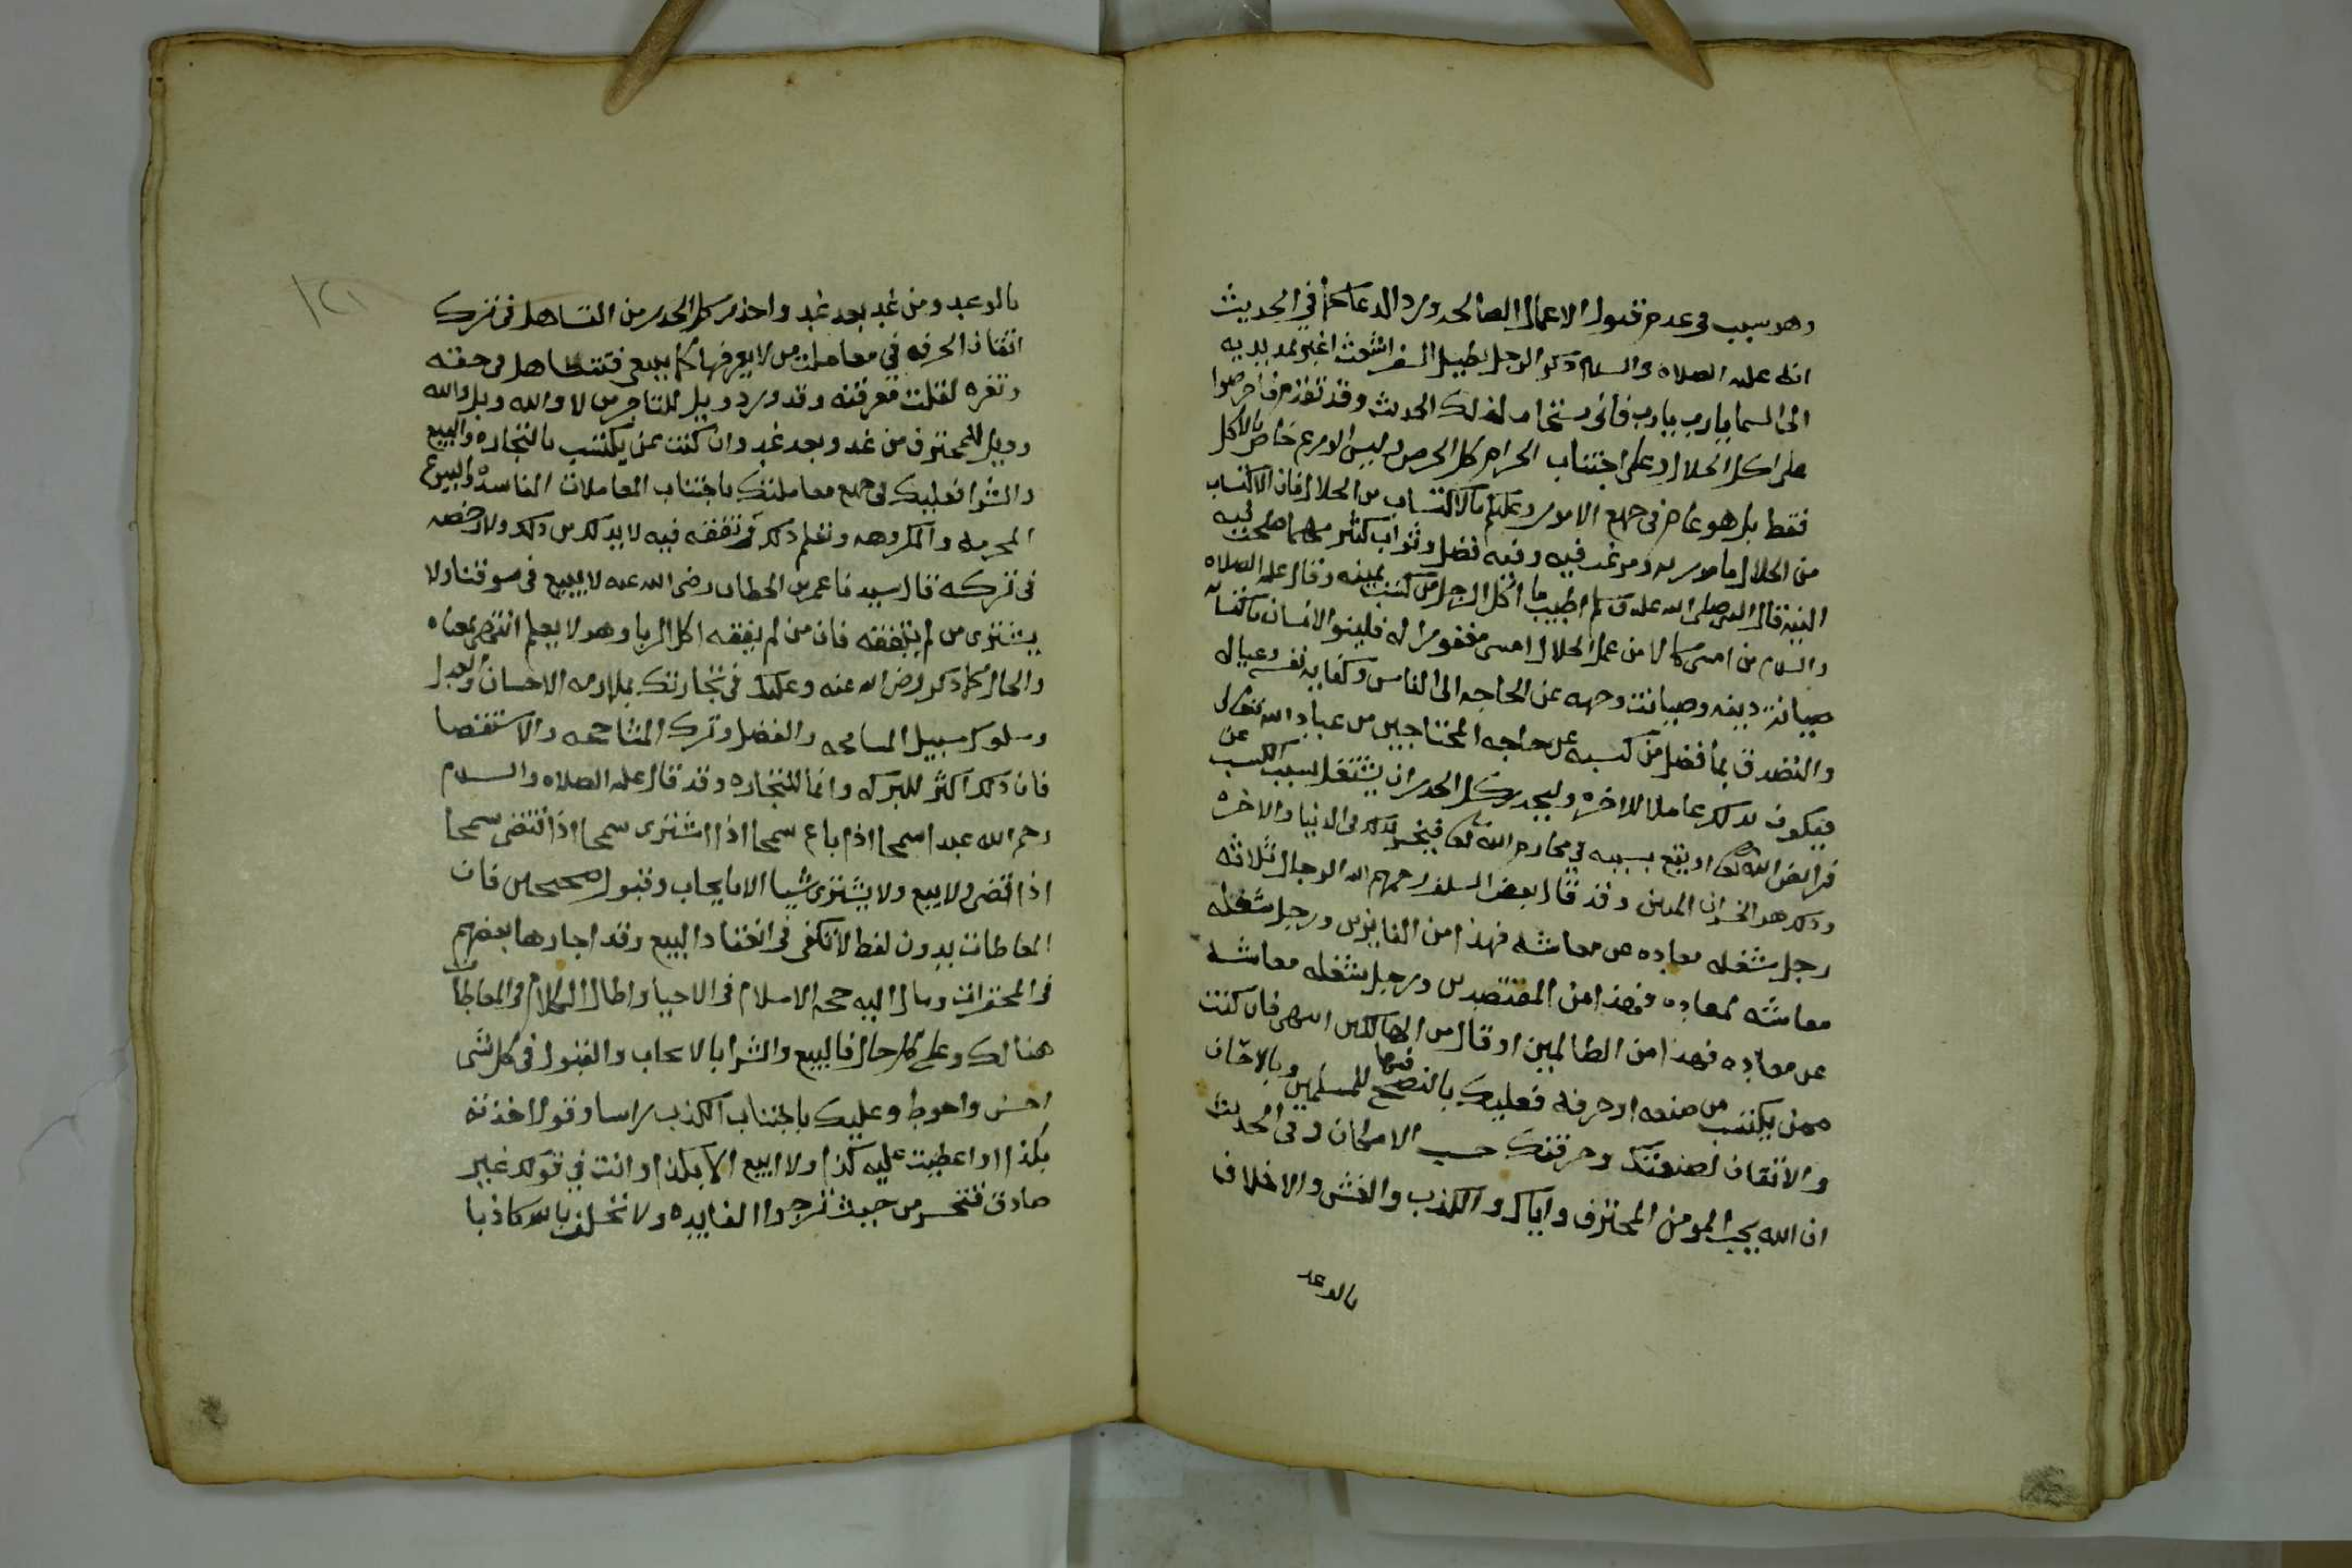 وهو سبب في عدم قبول الاعمال الصالحه ورد الدعا كما في الحديث
انه عليه الصلاه والسلام ذكر الرجل يطيل السفر اشعث اغبر يمد يديه
الى السما يارب يارب فانى يستجاب لذلك الحديث وقد تقدم فاحرصوا
على اكل الحلال وعلى اجتناب الحرام كل الحرص وليس الورع خاص بالاكل
فقط بل هو عام في جميع الامور وعليكم بالاكتساب من الحلال فان الاكتساب
من الحلال مامور به ومرغب فيه وفيه فضل وثواب كثير مهما صلحت فيه
النيه قال النبي صلى الله عليه وسلم اطيب ما اكل الرجل من كسب يمينه وقال عليه الصلاه
والسلام من امسى كالا من عمل الحلال امسى مغفورا له فلينو الانسان باكتسابه
صيانة دينه وصيانت وجهه عن الحاجه الى الناس وكفاية نفسه وعياله
والتصدق بما فضل من كسبه عن حاجه المحتاجين من عباد الله تعالى
فيكون بذلك عاملا للاخره وليحذر كل الحذر ان يشتغل بسبب الكسب عن
فرايض الله تعا او يقع بسببه في محارم الله تعا فيخسر بذلك في الدنيا والاخره
وذلك هو الخسران المبين وقد قال بعض السلف رحمهم الله الرجال ثلاثه
رجل شغله معاده عن معاشه فهذا من الفايزين ورجل شغله
معاشه لمعاده فهذا من المقتصدين ورجل شغله معاشه
عن معاده فهذا من الظالمين او قال من الهالكين انتهى فان كنت
ممن يكتسب من صنعه او حرفه فعليك بالنصح فيها للمسلمين وبالاحسان
والاتقان لصنعتك وحرفتك حسب الامكان وفي الحديث
ان الله يحب المومن المحترف واياك والكذب والغش والاخلاف
بالوعد
١٢١
بالوعد ومن غد بعد غد واحذر كل الحذر من التساهل في ترك
اتقان الحرفه في معاملت من لا يعرفها كما ينبغي فتتساهل في حقه
وتغره لقلت معرفته وقد ورد ويل للتاجر من لا والله وبلى والله
وويل للمحترف من غد وبعد غد وان كنت ممن يكتسب بالتجاره والبيع
والشرا فعليك في جميع معاملتك باجتناب المعاملات الفاسده والبيوع
المحرمه والمكروهه وتعلم ذلك وتفقه فيه لا بد لك من ذلك ولا رخصه
في تركه قال سيدنا عمر بن الخطاب رضي الله عنه لا يبيع في سوقنا ولا
يشتري من لم يتفقه فان من لم يفقه اكل الربا وهو لا يعلم انتهى بمعناه
والحال كما ذكر رضي الله عنه وعليك في تجارتك بملازمه الاحسان والعدل
وسلوك سبيل المسامحه والفضل وترك المشاححه والاستقصا
فان ذلك اكثر للبركه وانما للتجاره وقد قال عليه الصلاه والسلام
رحم الله عبدا سمحا اذا باع سمحا اذا اشترى سمحا اذا اقتضى سمحا
اذا قضى ولا يبيع ولا يشتري شيا الا بايجاب وقبول صحيحين فان
المعاطات بدون لفظ لا تكفي في انعقاد البيع وقد اجازها بعضهم
في المحقرات ومال اليه حجه الاسلام في الاحيا واطال الكلام في المعاطات
هنالك وعلى كل حال فالبيع والشرا بالايجاب والقبول في كل شى
احسن واحوط وعليك باجتناب الكذب راسا وقولا اخذته
بكذا او اعطيت عليه كذا ولا ابيع الا بكذا وانت في قولك غير
صادق فتخسر من حيث ترجوا الفايده ولا تحلف بالله كاذبا